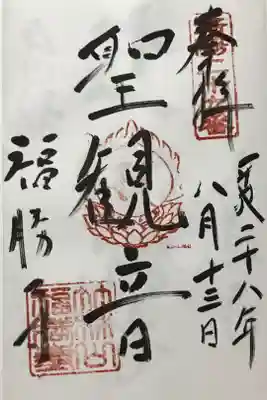 奉拝
平成二十八年
八月十三日
聖観音
福勝寺